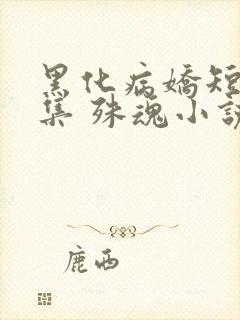 黑化病嬌短
集 殊魂小說
鹿西